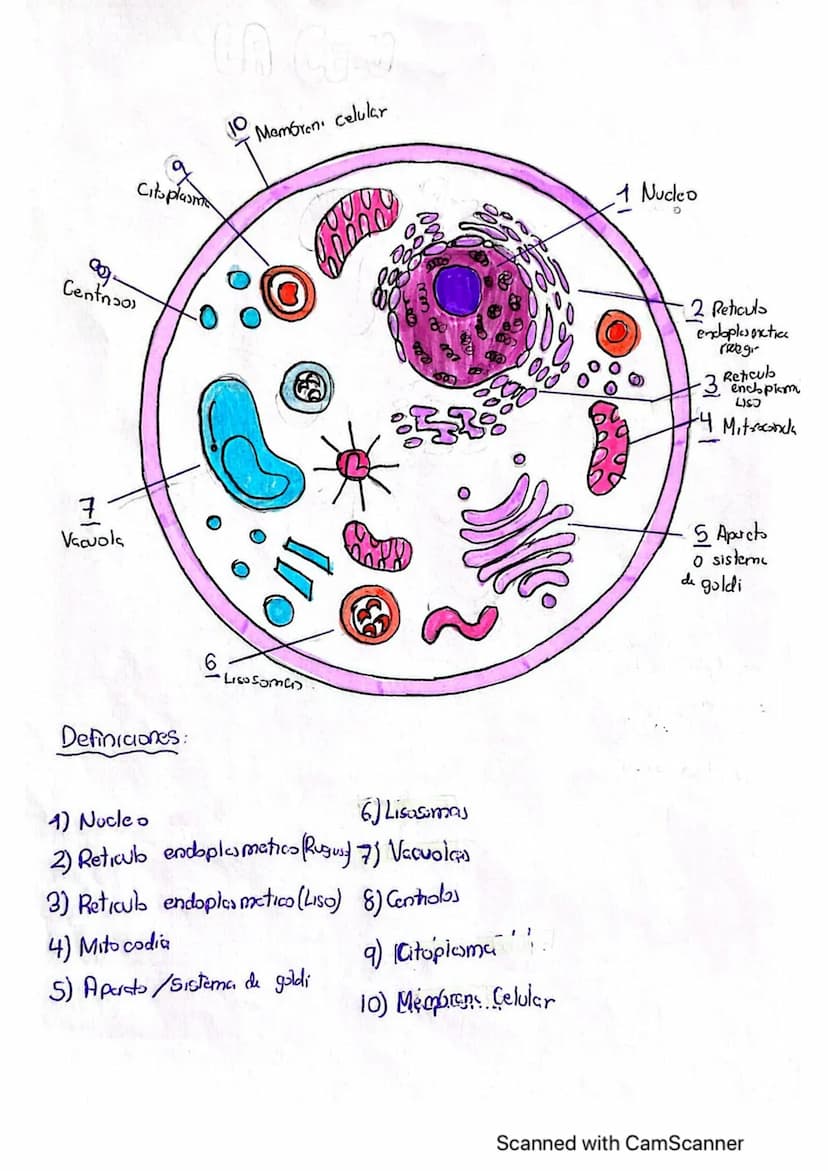 LA Célu
10 Membran. celular
9
Citoplasma
1 Nucleo
8
2 Reticulo
endoplasmatico
3 Reticulo
endoplasm
LISO
4 Mitocondr
5 Aparato
o sistema
de goldi
7
Vacuola
6
Lisosomas
Definiciones:
1) Nucleo
2) Reticulo endoplasmatico (Rugoso)
3) Reticulo endoplasmatico (Liso)
4) Mitocodia
5) Aparato / Sistema de goldi
6) Lisosomas
7) Vacuolas
8) Centriolos
9) Citoplasma
10) Membrana Celular
Scanned with CamScanner